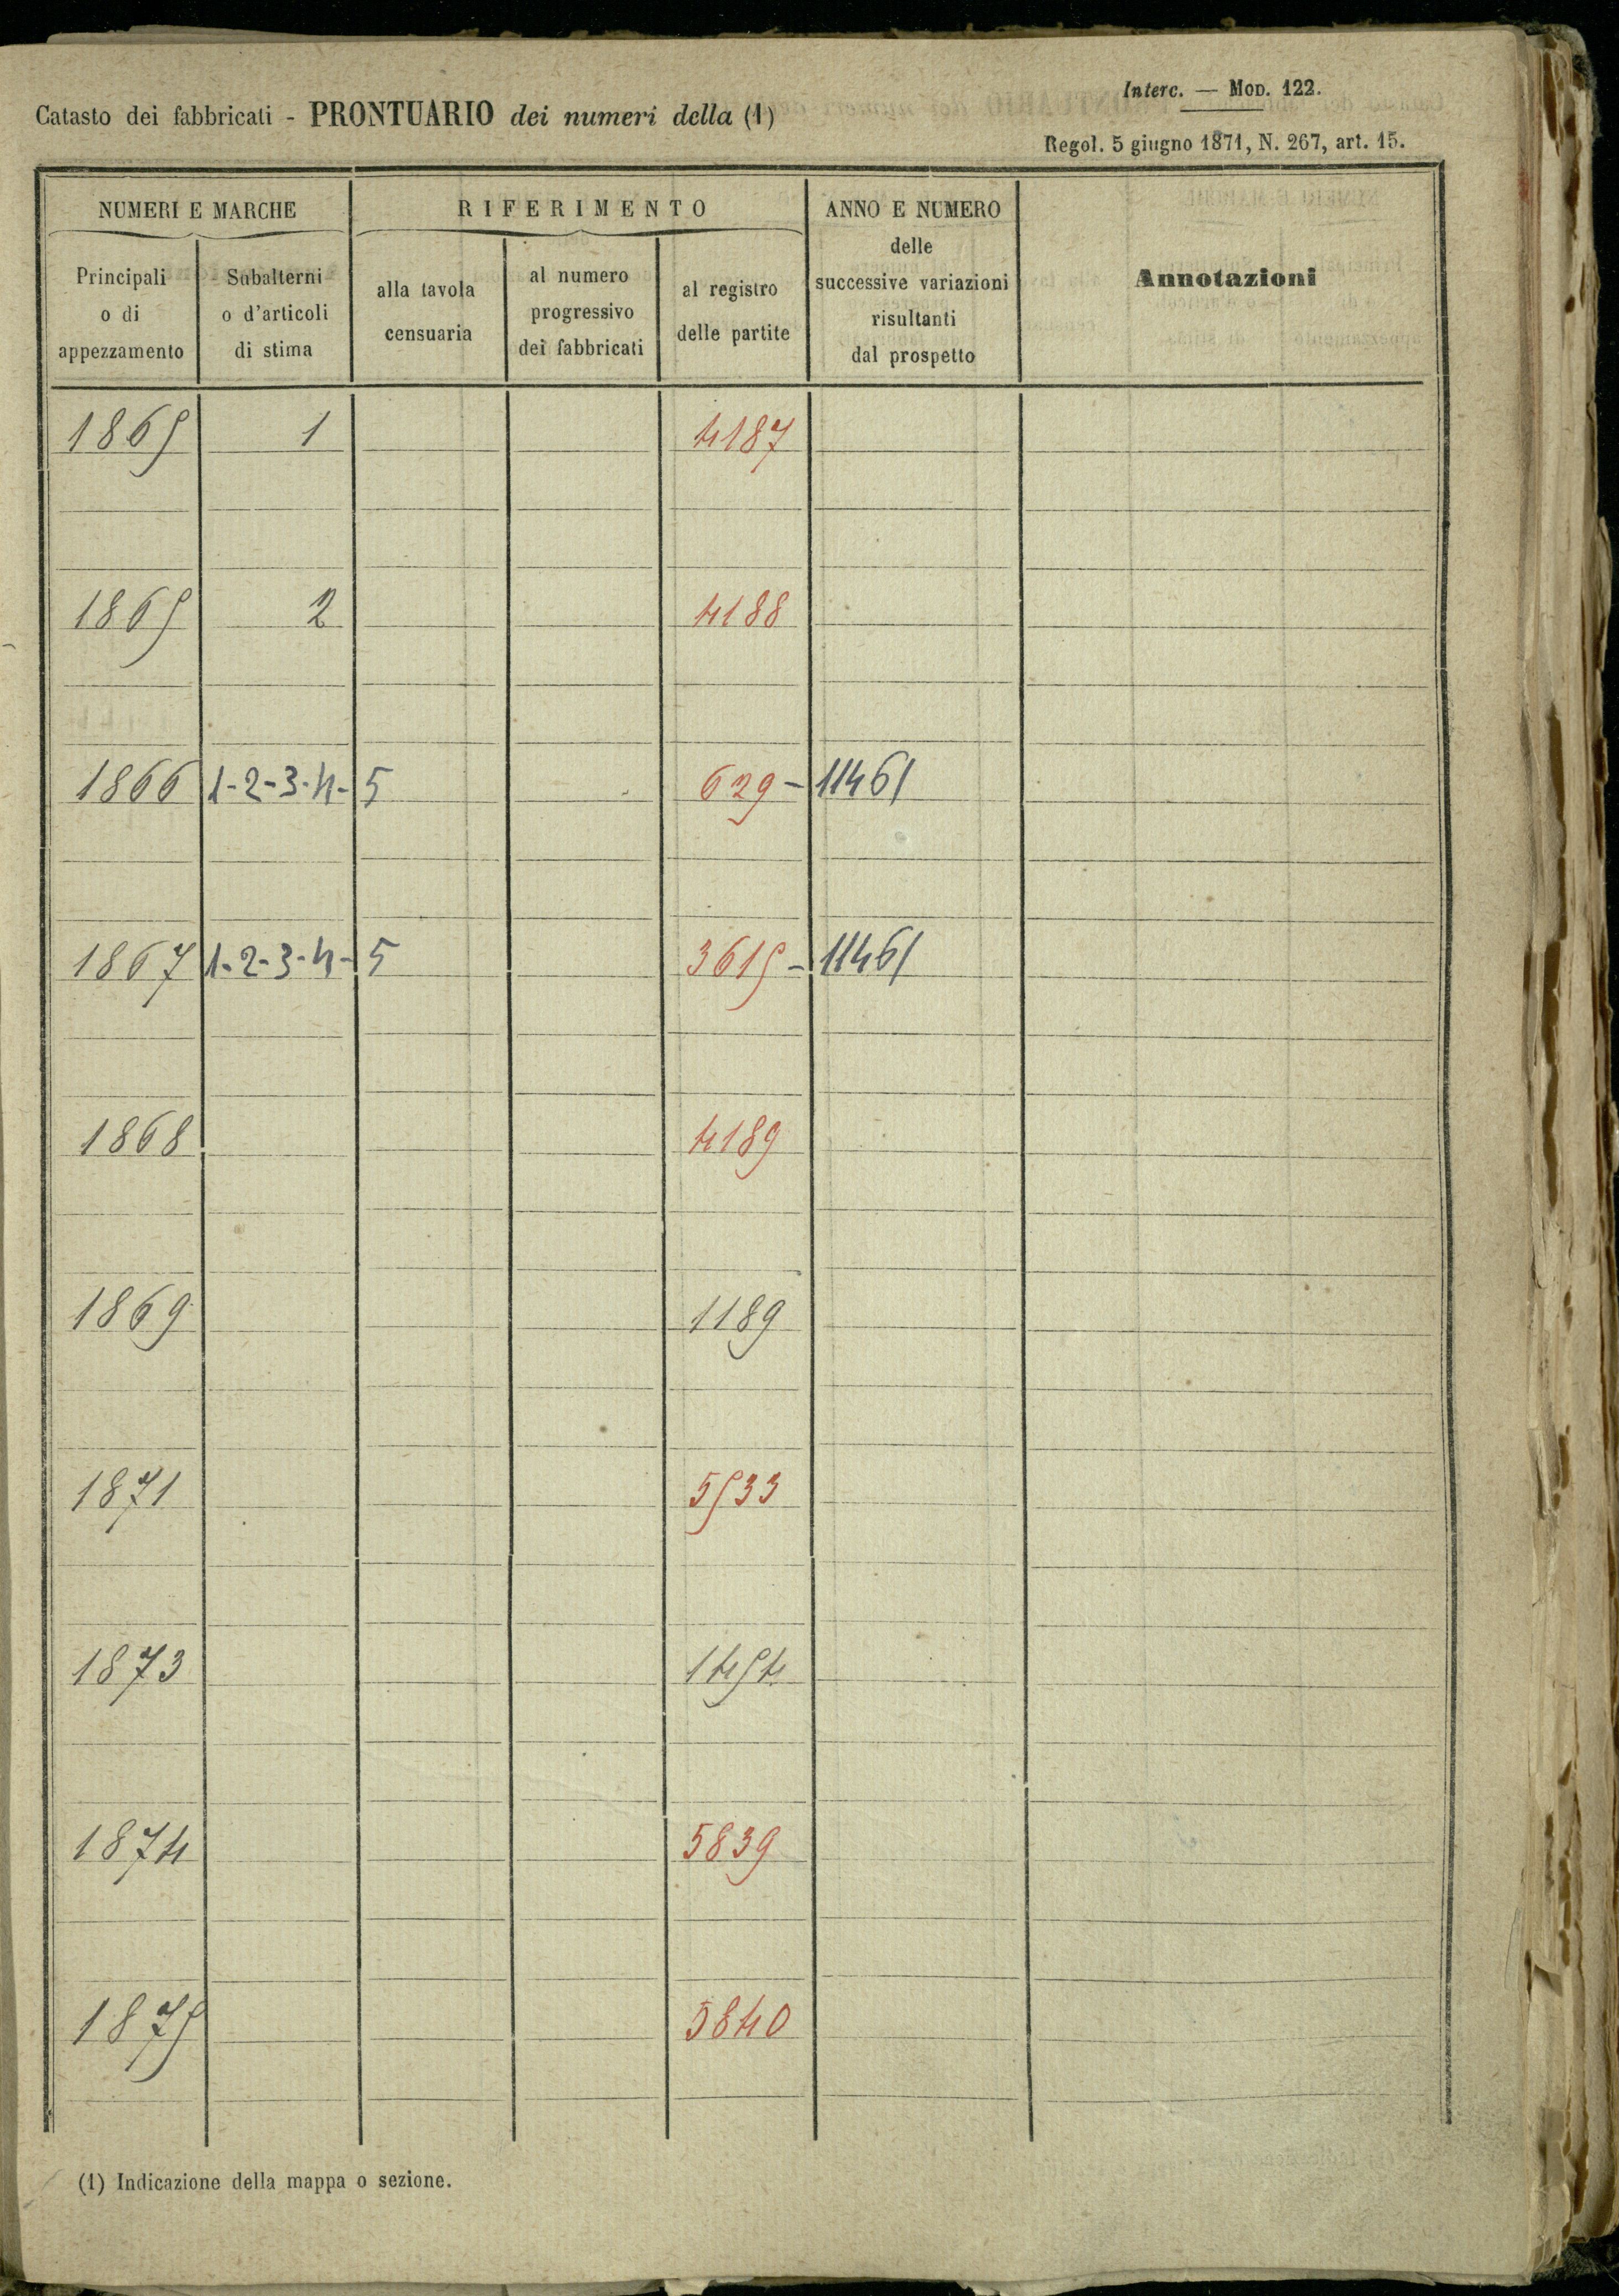 Interc. — MOD. 122.
Catasto dei fabbricati - PRONTUARIO dei numeri della (1)
Regol. 5 giugno 1871, N. 267, art. 15.
NUMERI E MARCHE RIFERIMENTO ANNO E NUMERO
delle
successive variazioni
risultanti
dal prospetto
Principali
o di
appezzamento
Subalterni
o d'articoli
di stima
alla tavola
censuaria
al numero
progressivo
dei fabbricati
al registro
delle partite
Annotazioni
1865 1 4187
1865 2 4188
1866 1-2-3-4-5 629-11461
1867 1-2-3-4-5 3615-11461
1868 4189
1869 1189
1871 5533
1873 1454
1874 5839
1875 5840
(1) Indicazione della mappa o sezione.